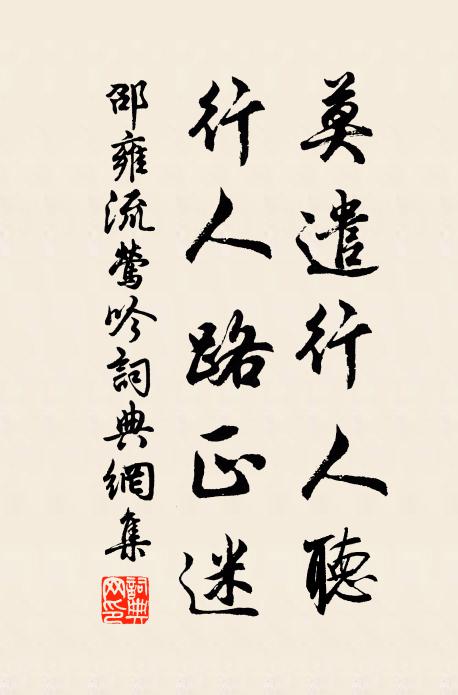 莫遣行人聽
行人路正迷
邵雍流鶯吟詞典網集
詞典網印